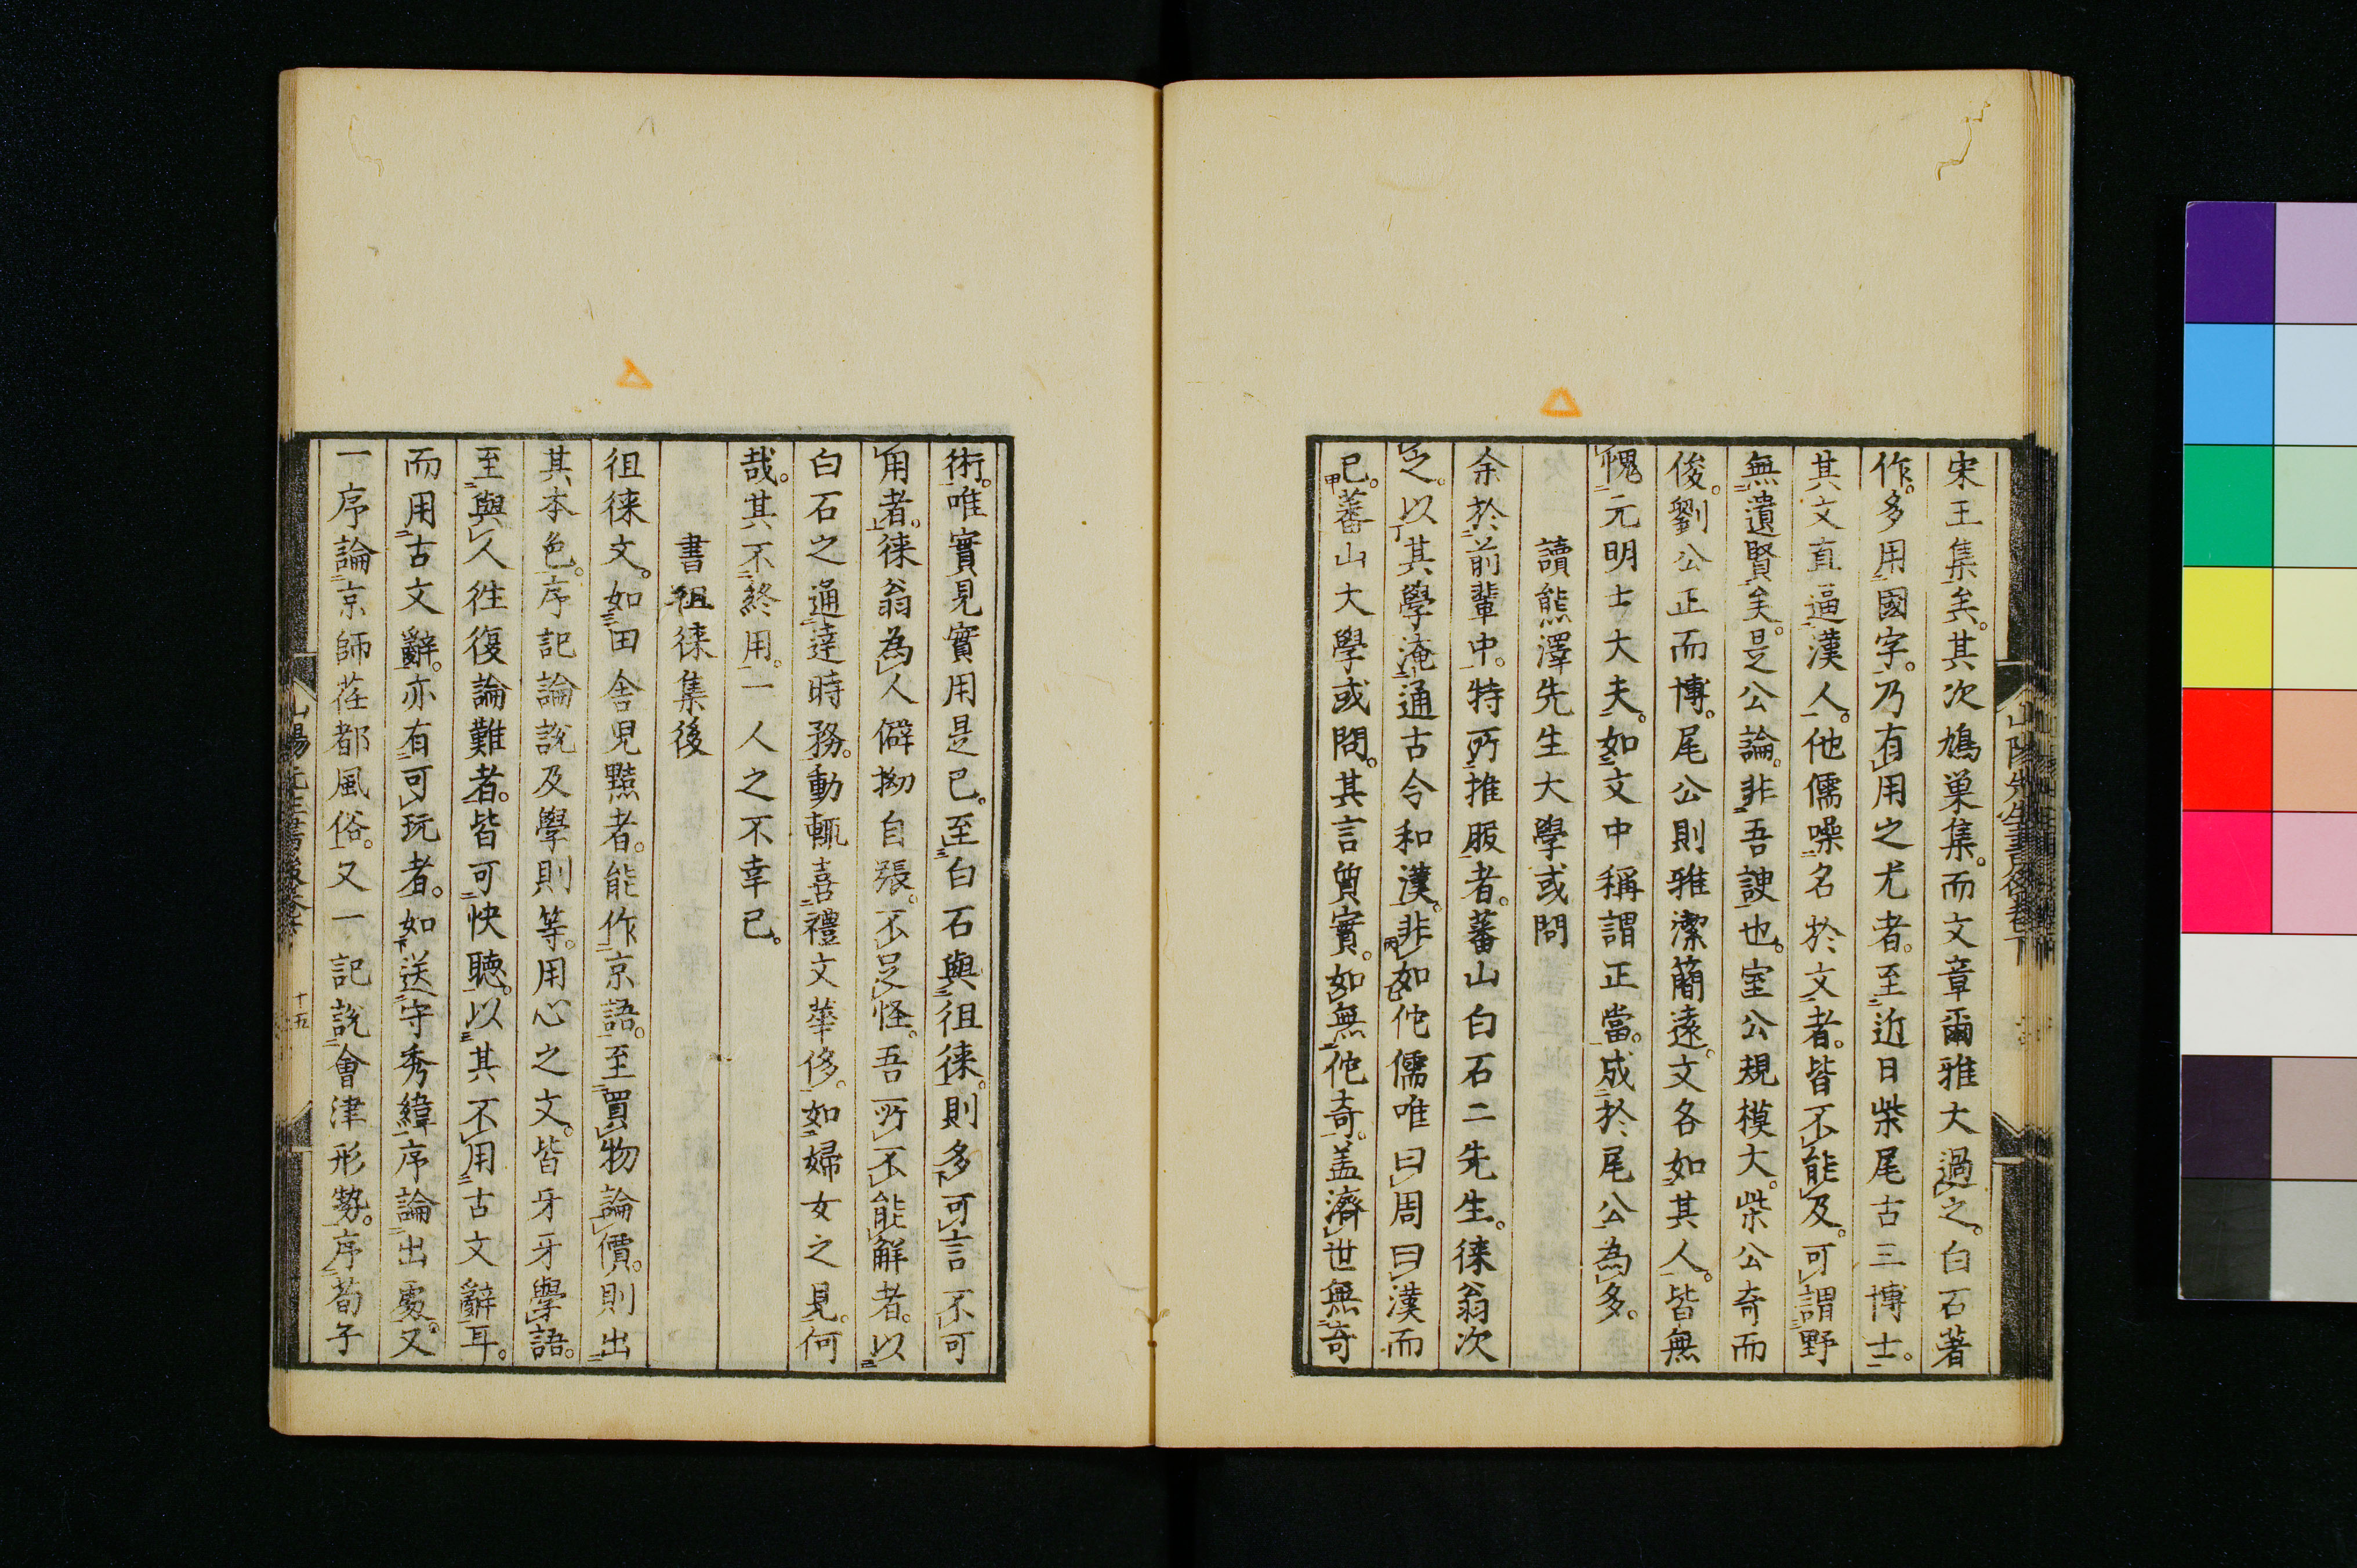 宋王集矣。其次鳩巣集。而文章爾雅大過之。白石著
作。多用國字。乃有用之尤者。至近日柴尾古三博士。
其文直逼漢人。他儒噪名於文者。皆不能及。可謂野
無遺賢矣。是公論。非吾諛也。室公規模大。柴公奇而
俊。劉公正而博。尾公則雅潔簡遠。文各如其人。皆無
愧元明士大夫。如文中稱謂正當。成於尾公為多。
讀熊澤先生大學或問
余於前輩中。特所推服者。蕃山白石二先生。徠翁次
之。以其學淹通古今和漢。非如他儒唯曰周曰漢而
已。蕃山大學或問。其言質實。如無他奇。盖濟世無奇
術。唯實見實用是已。至白石與徂徠。則多可言不可
用者。徠翁為人僻拗自張。不足怪。吾所不能解者。以
白石之通達時務。動輒喜禮文華侈。如婦女之見。何
哉。其不終用。一人之不幸已。
書徂徠集後
徂徠文。如田舍児黠者。能作京語。至買物論價。則出
其本色。序記論說及學則等。用心之文。皆牙牙學語。
至與人徃復論難者。皆可快聴。以其不用古文辭耳。
而用古文辭。亦有可玩者。如送守秀緯序論出處。又
一序論京師荏都風俗。又一記說會津形勢。序荀子
山陽先生書後卷下
十五